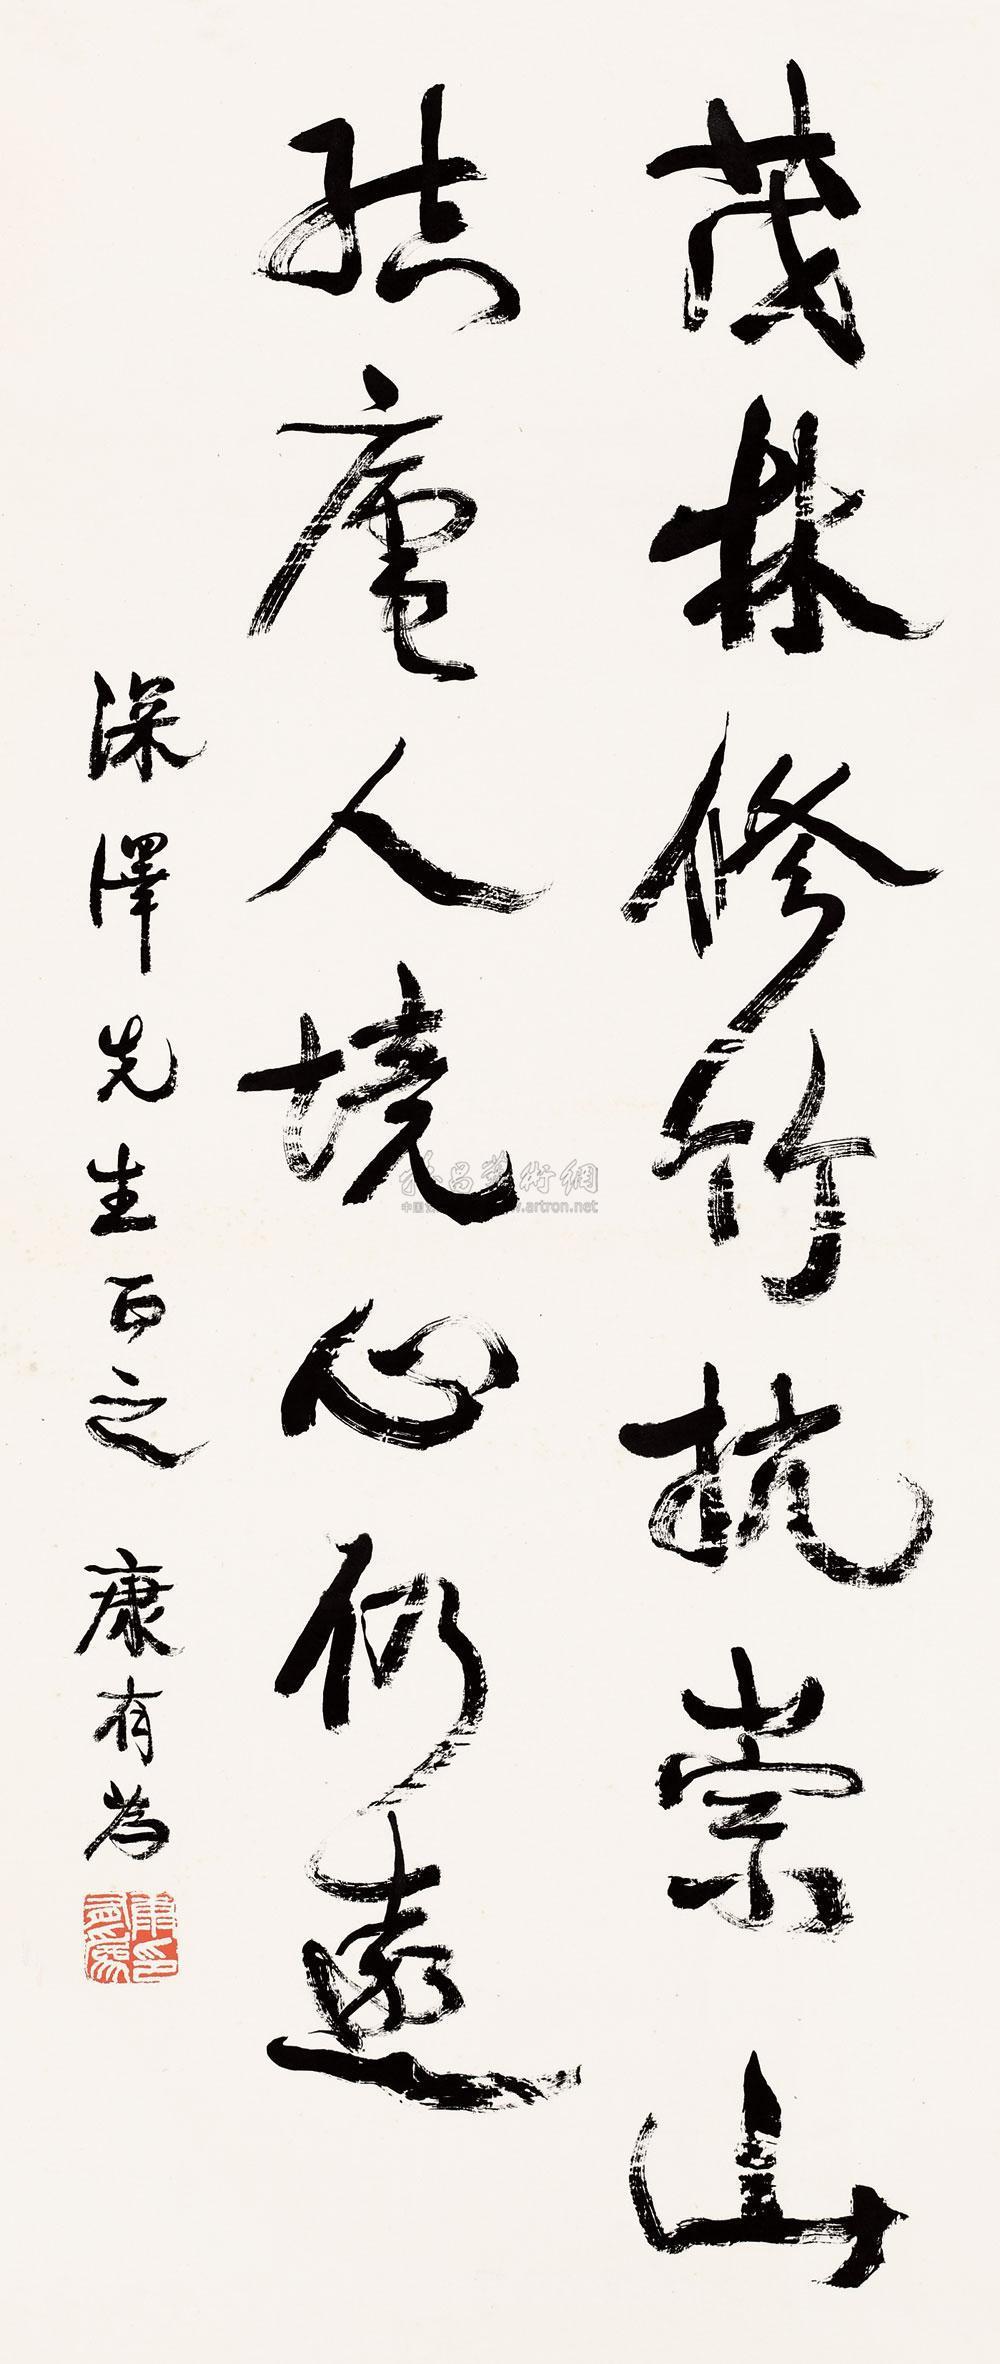 茂林修竹抗崇山
結廬人境心仍遠
深澤先生正之 康有為
康有為印
雅昌藝術網
www.artron.net